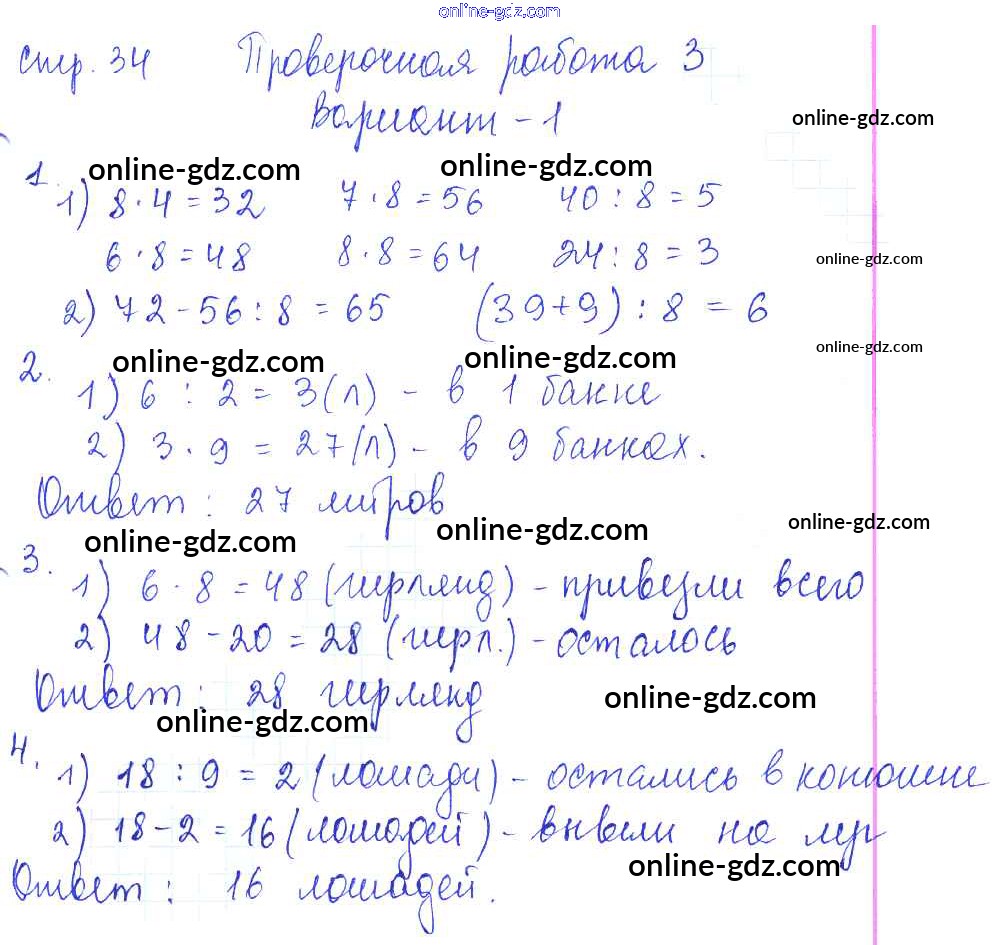 online-gdz.com
стр. 34 Проверочная работа 3
Вариант - 1
online-gdz.com
online-gdz.com online-gdz.com
1. 1) 8 · 4 = 32 7 · 8 = 56 40 : 8 = 5
6 · 8 = 48 8 · 8 = 64 24 : 8 = 3
online-gdz.com
2) 72 - 56 : 8 = 65 (39 + 9) : 8 = 6
online-gdz.com online-gdz.com online-gdz.com
2. 1) 6 : 2 = 3 (л) - в 1 банке
2) 3 · 9 = 27 (л) - в 9 банках.
Ответ : 27 литров
online-gdz.com online-gdz.com online-gdz.com
3. 1) 6 · 8 = 48 (гирлянд) - привезли всего
2) 48 - 20 = 28 (гирл.) - осталось
Ответ : 28 гирлянд
online-gdz.com online-gdz.com
4. 1) 18 : 9 = 2 (лошади) - остались в конюшне
2) 18 - 2 = 16 (лошадей) - вывели на луг
online-gdz.com
Ответ : 16 лошадей.